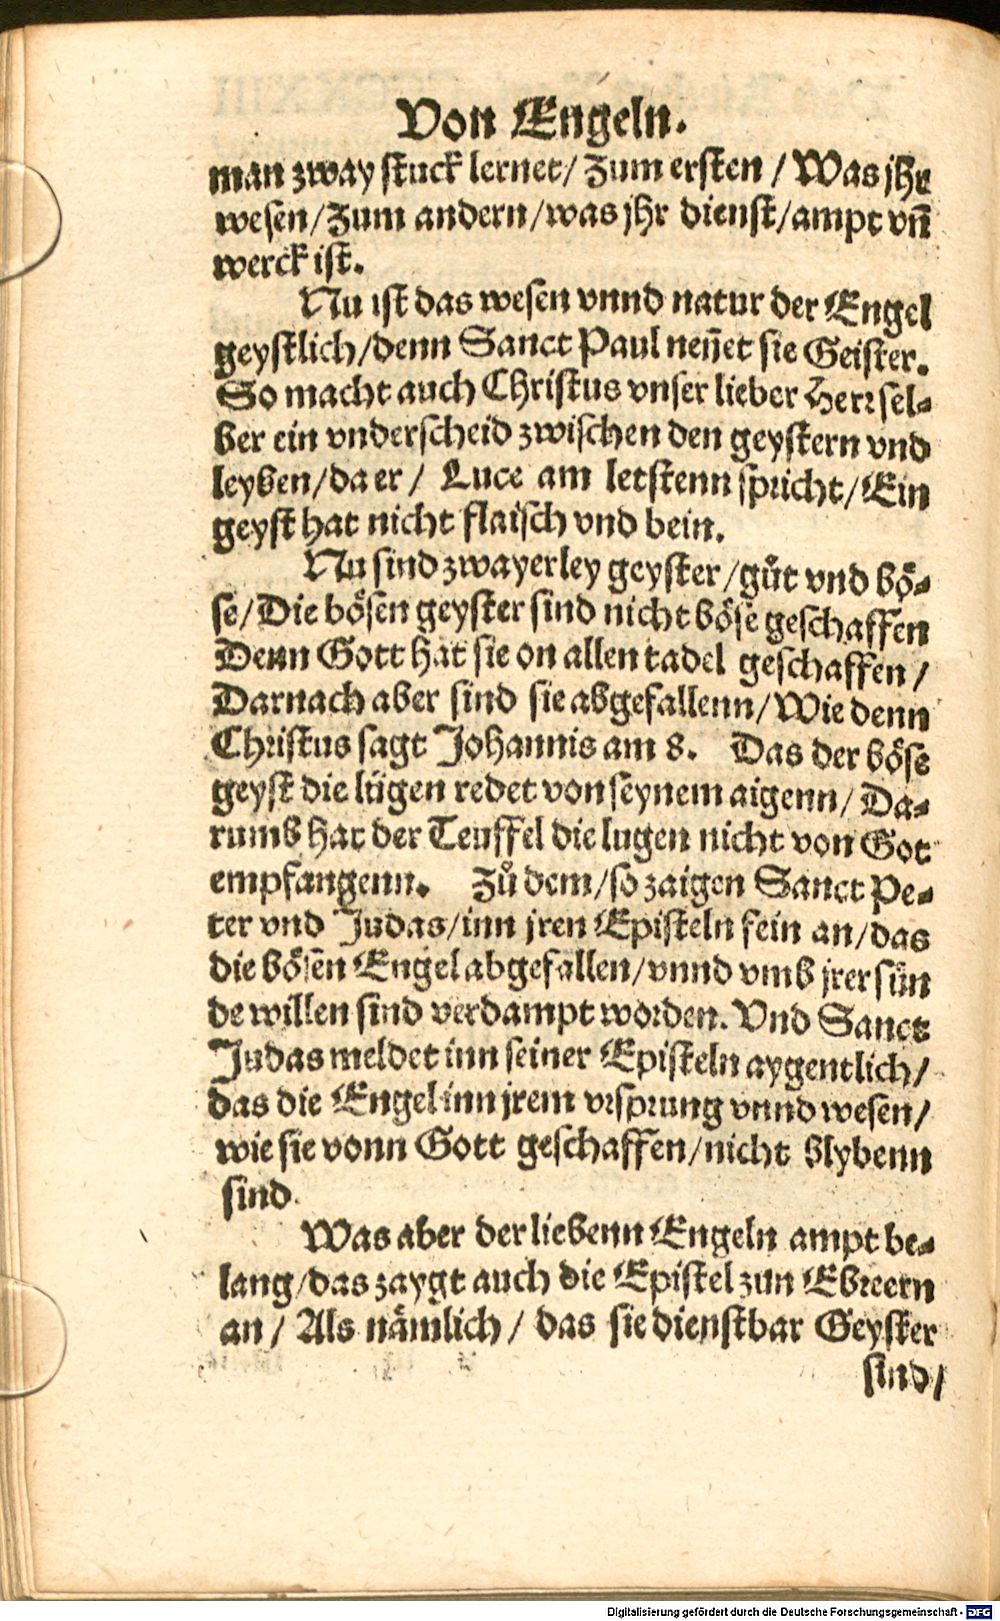 Von Engeln.
man zway stuck lernet/ Zum ersten / Was jhr
wesen/Zum andern/was jhr dienst/ampt vñ
werck ist.
Nu ist das wesen vnnd natur der Engel
geystlich/denn Sanct Paul neñet sie Geister.
So macht auch Christus vnser lieber Herr sel-
ber ein vnderscheid zwischen den geystern vnd
leyben/da er / Luce am letstenn spricht/Ein
geyst hat nicht flaisch vnd bein.
Nu sind zwayerley geyster/gůt vnd bö-
se/Die bösen geyster sind nicht böse geschaffen
Denn Gott hat sie on allen tadel geschaffen /
Darnach aber sind sie abgefallenn/Wie denn
Christus sagt Johannis am 8. Das der böse
geyst die lügen redet von seynem aigenn/ Da-
rumb hat der Teuffel die lugen nicht von Got
empfangenn. Zů dem/so zaigen Sanct Pe-
ter vnd Judas/inn jren Episteln fein an/das
die bösen Engel abgefallen/vnnd vmb jrer sün
de willen sind verdampt worden. Vnd Sanct
Judas meldet inn seiner Episteln aygentlich/
das die Engel inn jrem vrsprung vnnd wesen/
wie sie vonn Gott geschaffen/nicht blybenn
sind.
Was aber der liebenn Engeln ampt be-
lang/das zaygt auch die Epistel zun Ebreern
an / Als nämlich / das sie dienstbar Geyster
sind/
Digitalisierung gefördert durch die Deutsche Forschungsgemeinschaft - DFG